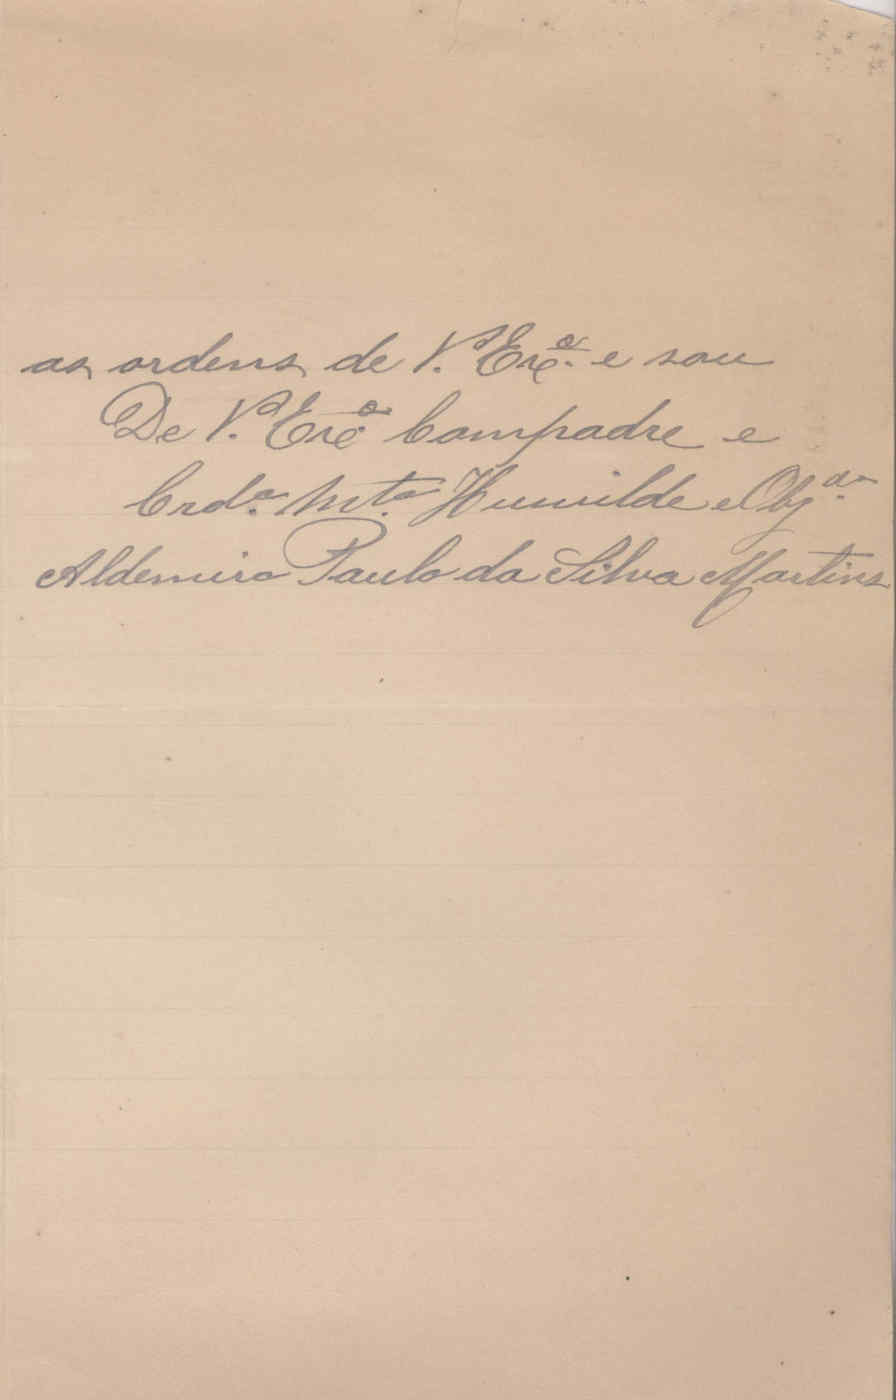 as ordens de V. Exª. e sou
De V. Excª Compadre e
Crdº. Mtº. Humilde e Obgdº.
Aldemiro Paulo da Silva Martins